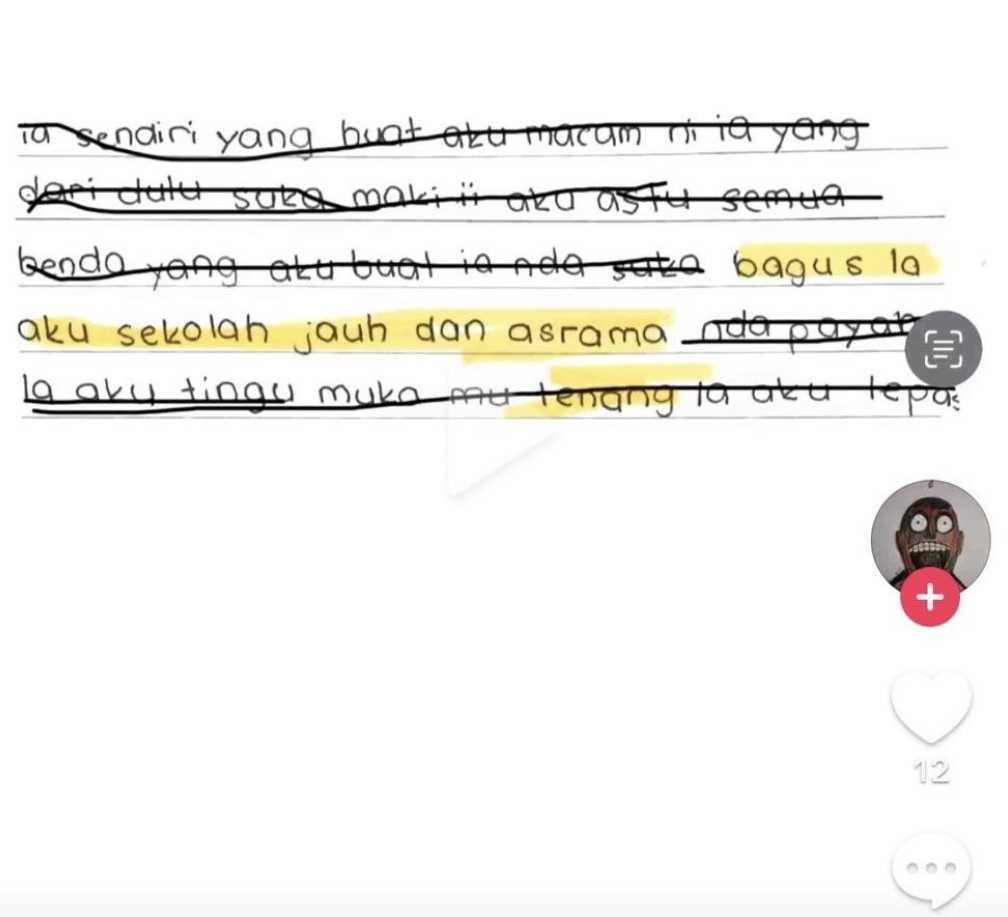 ia sendiri yang buat aku macam ni ia yang
dari dulu suka maki ii aku astu semua
benda yang aku buat ia nda suka bagus la
aku sekolah jauh dan asrama nda payah
la aku tingu muka mu tenang la aku lepas
12